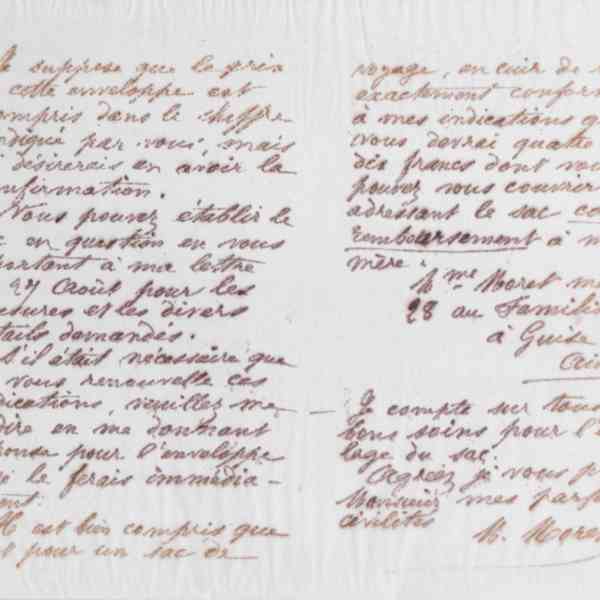 Je suppose que le prix
cette enveloppe est
compris dans le cheffre
ndiqué par vous, mais
désirerais en avoir la
nfirmation.
Vous pouvez établir le
en question en vous
portant à ma lettre
27 Août pour les
esures et les divers
tails demandés.
S'il était nécessaire que
vous renouvelle ces
dications, veuillez me
dire en me donnant
ponse pour l'enveloppe
le ferais immédia-
ent.
Il est bien compris que
pour un sac de
voyage, en cuir de
exactement confor
à mes indications q
vous devrai quatre
dès francs dont vou
pouvez vous couvrir
adressant le sac co
remboursement à m
mère :
Mme Moret m
28 au Familis
à Guise
Ais
Je compte sur tous
bons soins pour l'
lage du sac.
Agréez je vous p
Monsieur mes parf
civilités
M. More